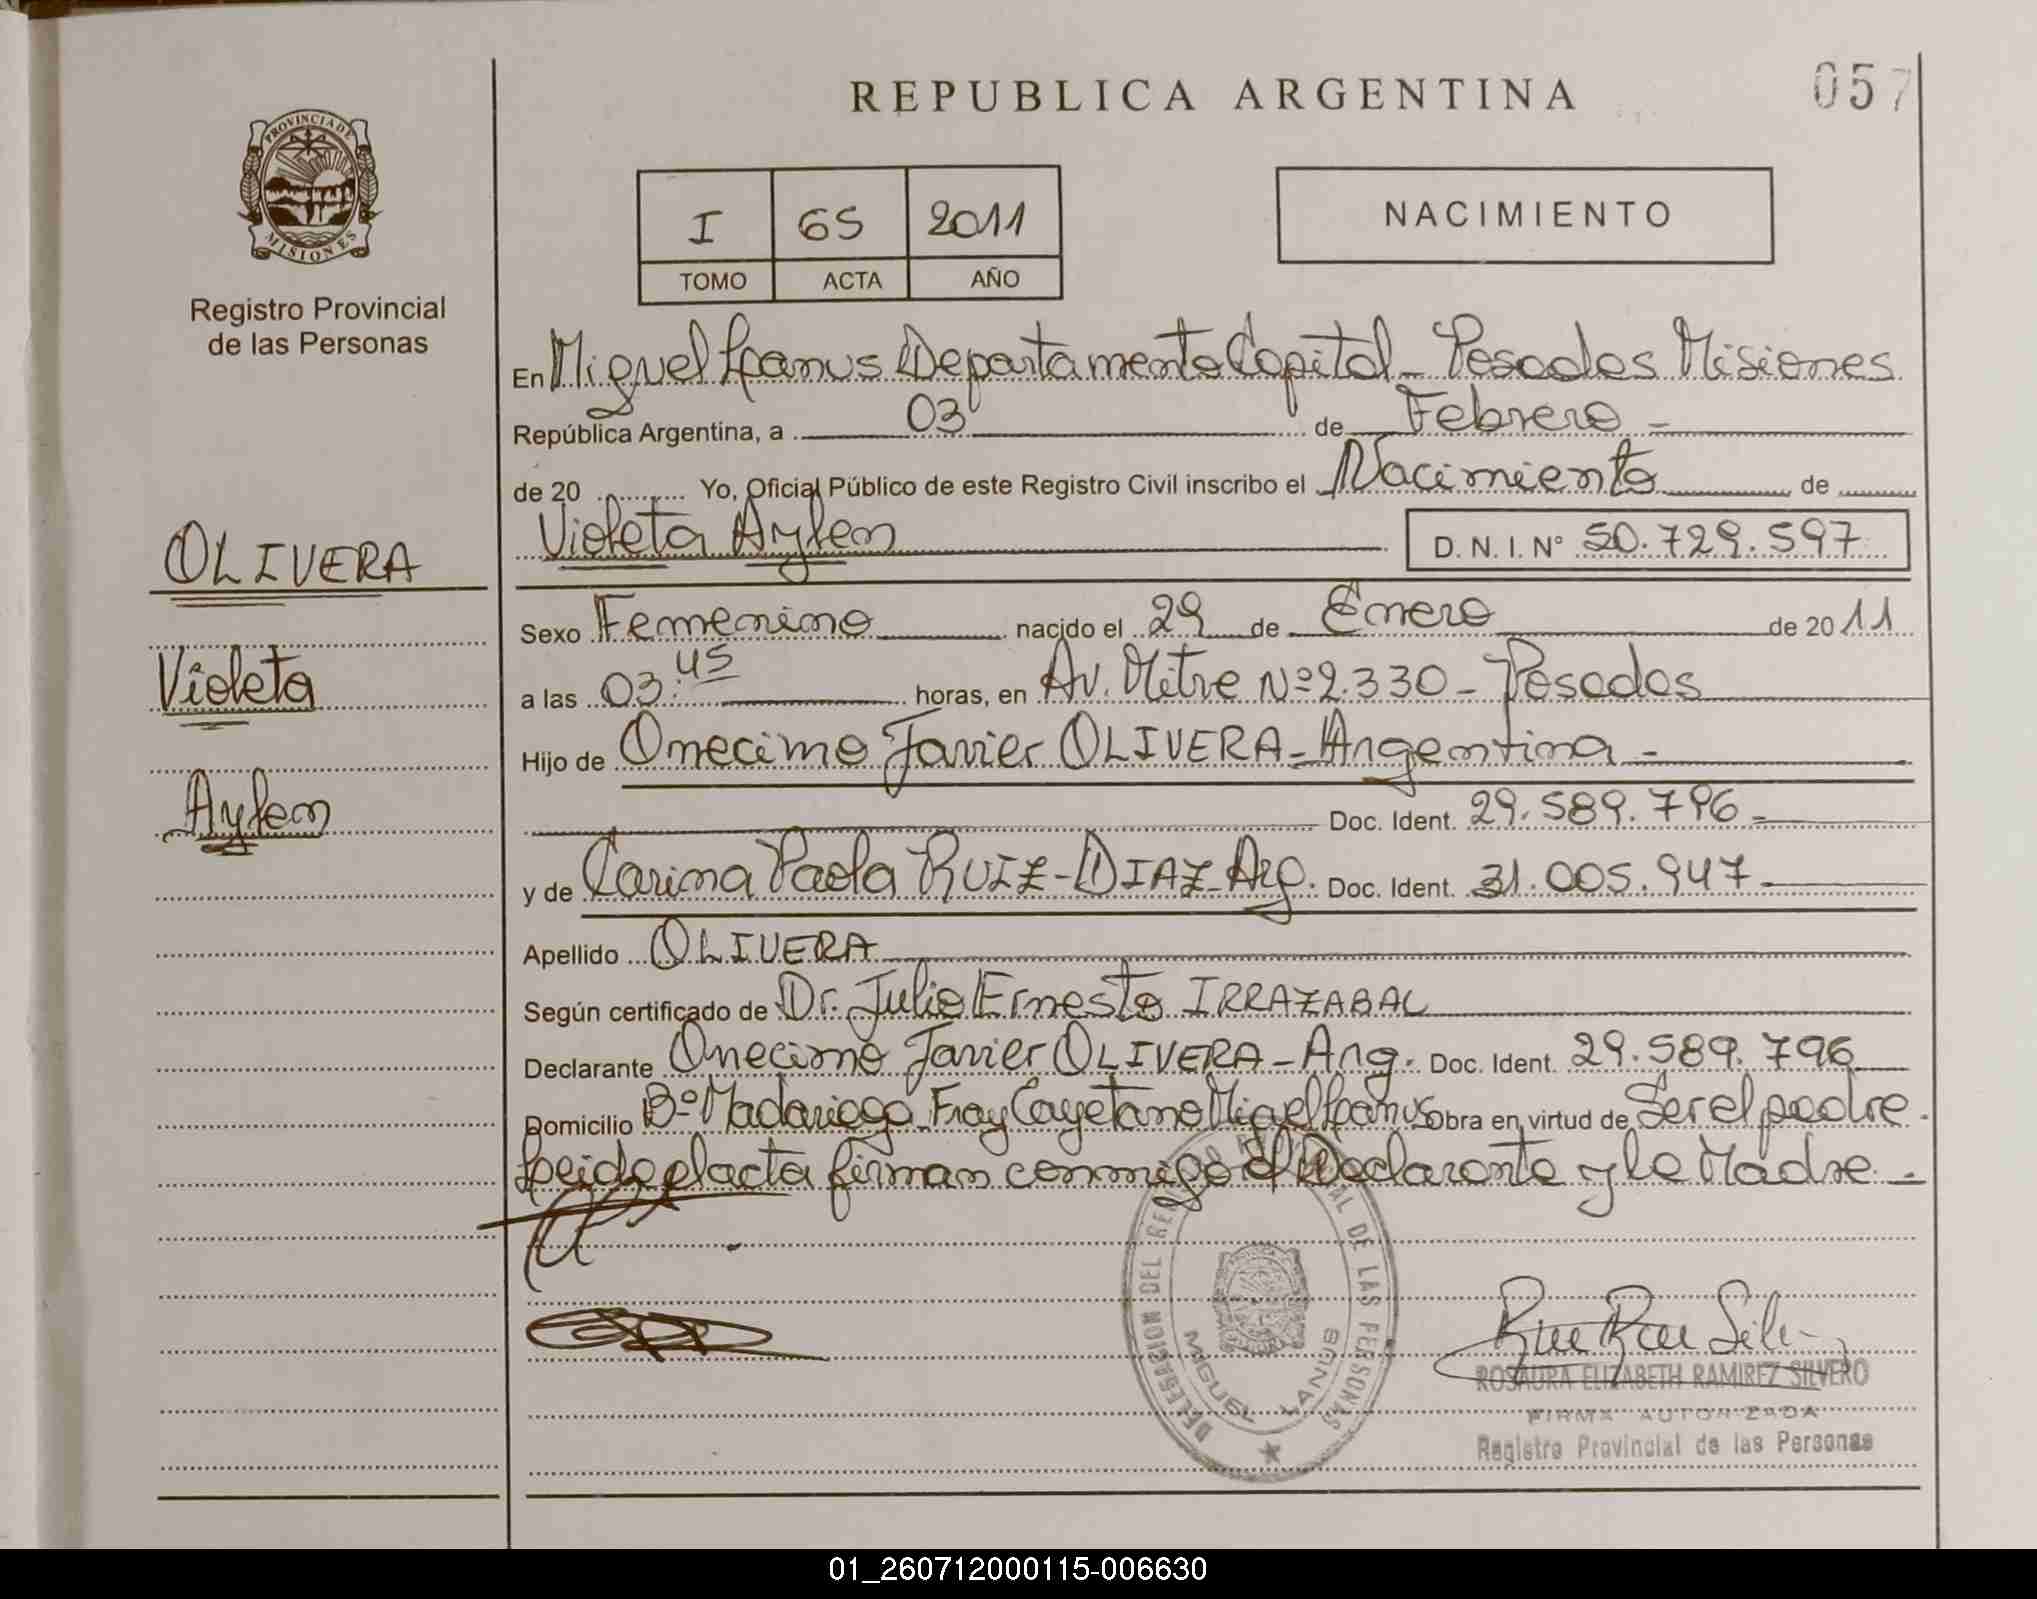 REPUBLICA ARGENTINA
057
PROVINCIA DE
MISIONES
Registro Provincial
de las Personas
I 65 2011
TOMO ACTA AÑO
NACIMIENTO
En Miguel Lanus Departamento Capital - Posadas Misiones
República Argentina, a 03 de Febrero -
de 20 Yo, Oficial Público de este Registro Civil inscribo el Nacimiento de
Violeta Aylen
D. N. I. Nº 50.729.597
OLIVERA
Violeta
Aylen
Sexo Femenino nacido el 29 de Enero de 2011
a las 03:45 horas, en Av. Mitre Nº 2.330 - Posadas
Hijo de Onecimo Javier OLIVERA - Argentina -
Doc. Ident. 29.589.796 -
y de Carina Paola RUIZ - DIAZ - Arg. Doc. Ident. 31.005.947
Apellido OLIVERA
Según certificado de Dr. Julio Ernesto IRRAZABAL
Declarante Onecimo Javier OLIVERA - Arg. Doc. Ident. 29.589.796
Domicilio Bº Madariaga - Fray Cayetano Miguel Lanus Obra en virtud de Ser el padre.
Leida el acta firman conmigo el Declarante y la Madre -
DELEGACION DEL REGISTRO PROVINCIAL DE LAS PERSONAS
MIGUEL LANUS
ROSAURA ELIZABETH RAMIREZ SILVERO
FIRMA AUTORIZADA
Registro Provincial de las Personas
01_260712000115-006630